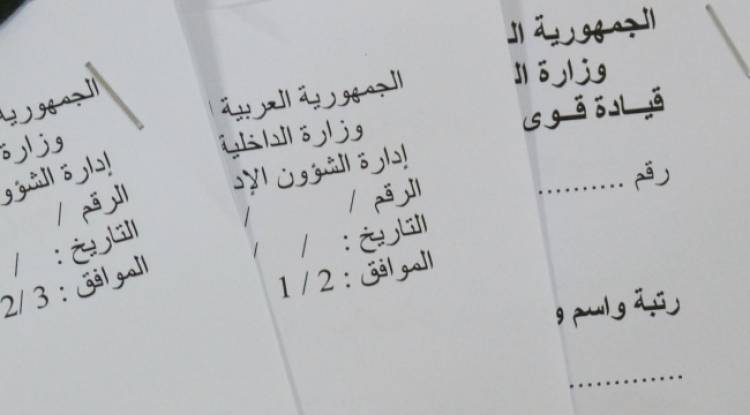 الجمهورية ال
وزارة ال
قيادة قوى
رقم ..........
رتبة واسم و
..............
الجمهورية العربية ا
وزارة الداخلية
إدارة الشؤون الإد
الرقم / /
التاريخ : / /
الموافق : 2 / 1
الجمهورية
وزارة
إدارة الشؤو
الرقم /
التاريخ : /
الموافق : 3 /2